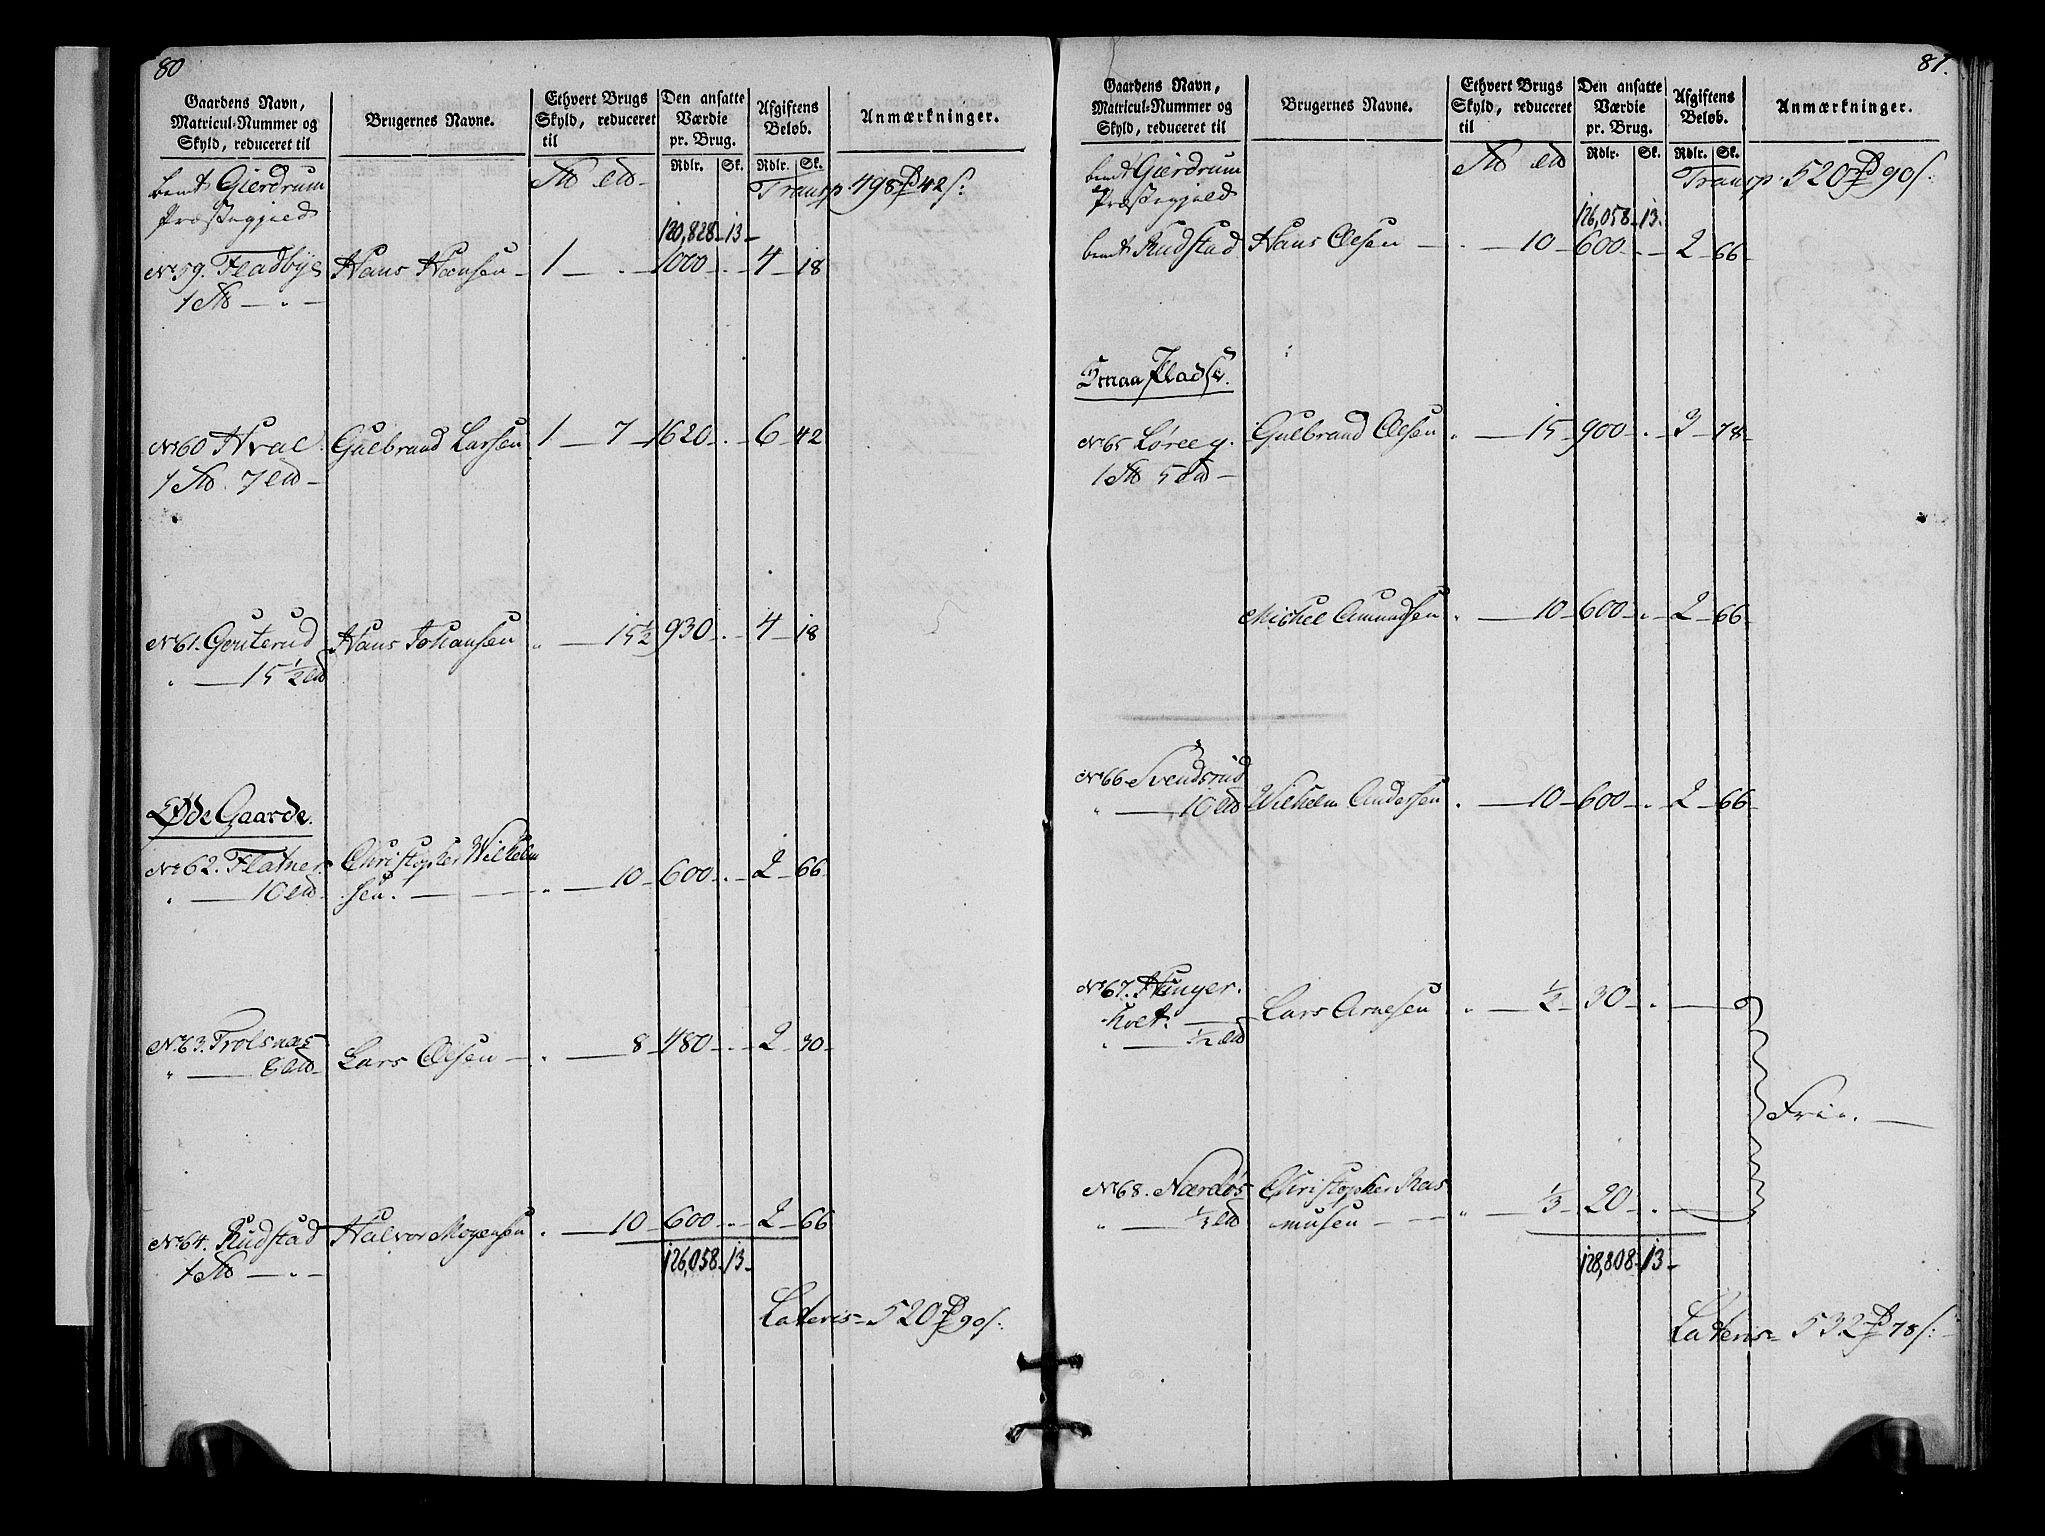 80
Gaardens Navn,
Matricul-Nummer og
Skyld, reduceret til
Brugernes Navne.
Ethvert Brugs
Skyld, reduceret
til
Den ansatte
Værdie
pr. Brug.
Afgiftens
Beløb.
Anmærkninger.
Rdlr. Sk. Rdlr. Sk.
bemt Gierdrum
Præstegjeld
Transp. 498 42 s:
120,828 - 13 -
No 59. Fladbye Hans Hansen - 1 - " - 1000 - " - 4 - 18
1 - " -
No 60 Hval Gulbrand Larsen 1 - 7 - 1620 - " - 6 - 42
1 7
No 61. Gouterud Hans Johansen " - 15½ 930 - " - 4 - 18
" - 15½
Øde Gaarde.
No 62. Flatner Christopher Wilhelm
" - 10 sen. - " - 10 - 600 - " - 2 - 66
No 63. Trolsnæs Lars Olsen - " - 8 - 480 - " - 2 - 30
" - 8
No 64. Rudstad Halvor Mogensen " - 10 - 600 - " - 2 - 66
1 - " -
126,058 - 13 -
Lateris - 520 90 s:
81.
Gaardens Navn,
Matricul-Nummer og
Skyld, reduceret til
Brugernes Navne.
Ethvert Brugs
Skyld, reduceret
til
Den ansatte
Værdie
pr. Brug.
Afgiftens
Beløb.
Anmærkninger.
Rdlr. Sk. Rdlr. Sk.
bemt Gierdrum
Præstegjeld
Transp. 520 90 s:
126,058 - 13.
bemt Rudstad Hans Olsen - " - 10 - 600 - " - 2 - 66 -
Smaa Pladse.
No 65 Gulbrand Olsen " - 15 - 900 - " - 3 - 78 -
1 5
Michel Amundsen " - 10 - 600 - " - 2 - 66 -
No 66 Svendsrud
" - 10 Wilhelm Andersen " - 10 - 600 - " - 2 - 66 -
No 67. Hunger
holt. Lars Arnesen " - ½ - 30 - "
" - ½
Frie.
No 68. Nærdøs Christopher Ras
" - ⅓ musen - - " - ⅓ - 20 - "
128,808 - 13 -
Lateris - 532 78 s: